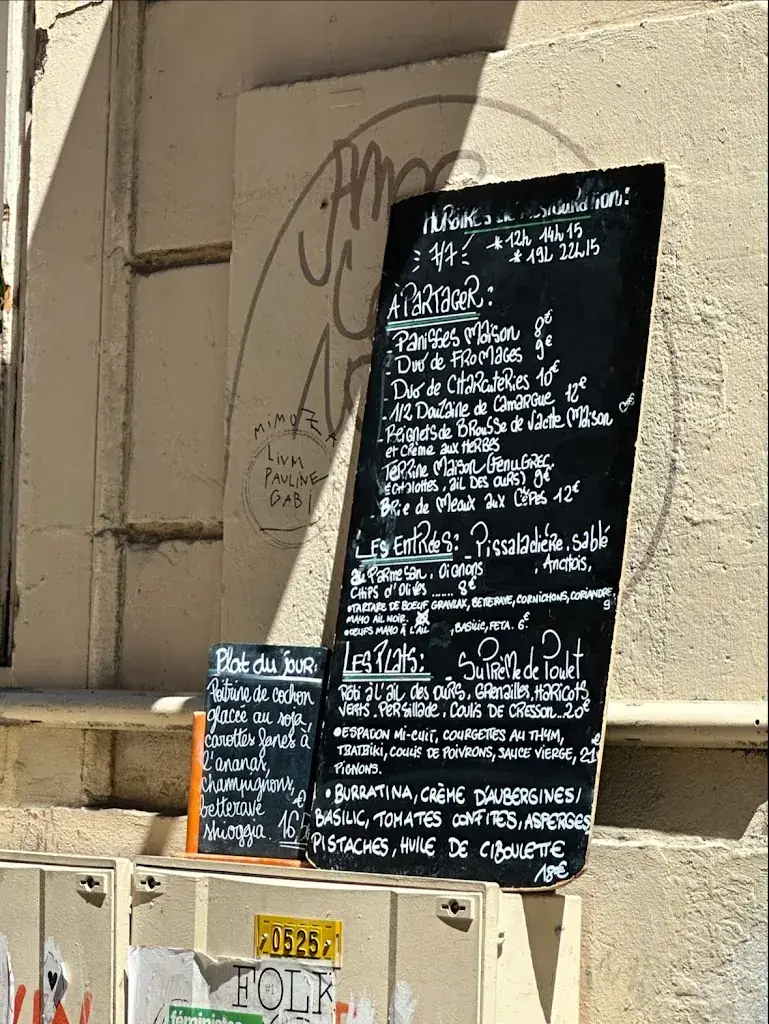 Horaires de restauration:
7/7 * 12h 14h15
* 19h 22h15
A PARTAGER:
- Panisses Maison 8€
- Duo de Fromages 9€
- Duo de Charcuteries 10€
- 1/2 Douzaine de Camargue 12€
- Beignets de Brousse de Vache Maison
et crème aux Herbes
Terrine Maison (Fenugrec
échalottes, ail des ours) 9€
- Brie de Meaux aux Cèpes 12€
Les Entrées: Pissaladière, sablé
au Parmesan, Oignons, Anchois,
Chips d'Olives ...... 8€
• TARTARE DE BOEUF GRAVLAX, BETTERAVE, CORNICHONS, CORIANDRE,
MAYO AIL NOIR. 9
• OEUFS MAYO À L'AIL, BASILIC, FETA. 6€
Les Plats: Suprême de Poulet
Rôti à l'ail des ours, Grenailles, Haricots
verts, Persillade, Coulis de Cresson...20€
• ESPADON MI-CUIT, COURGETTES AU THYM,
TZATZIKI, COULIS DE POIVRONS, SAUCE VIERGE, 21€
PIGNONS.
• BURRATINA, CRÈME D'AUBERGINES/
BASILIC, TOMATES CONFITES, ASPERGES
PISTACHES, HUILE DE CIBOULETTE
18€
Plat du jour:
Poitrine de cochon
glacée au soja
carottes fanes à
l'ananas,
champignons,
betterave
shioggia 16€
MIMOZA
LIVM
PAULINE
GABI
0525
FOLK
#1
féministes